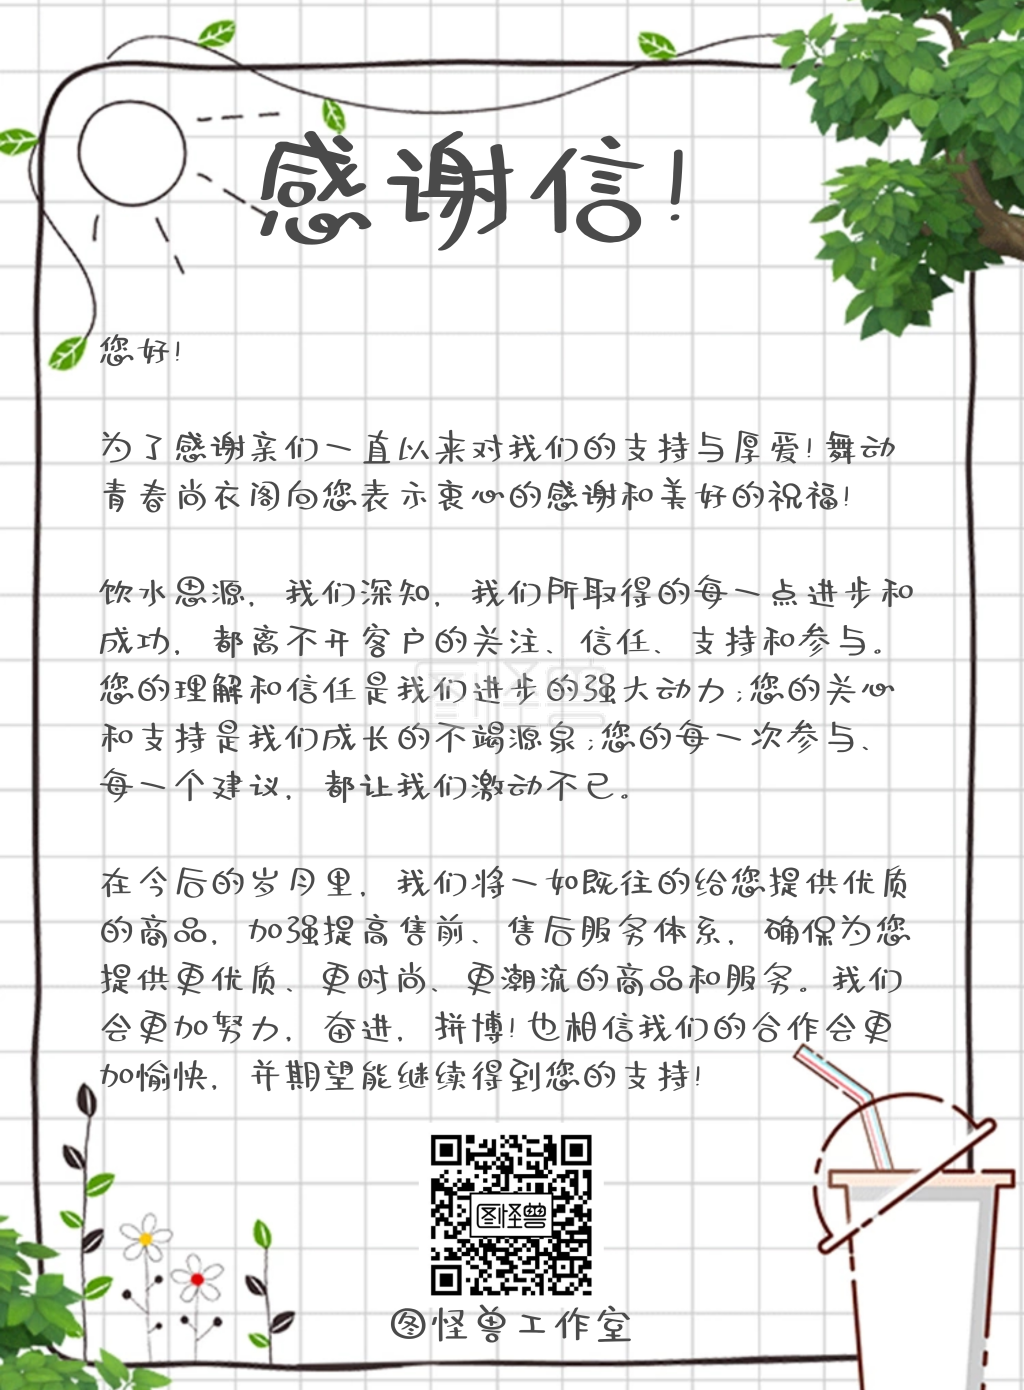 感谢信!
您好!
为了感谢亲们一直以来对我们的支持与厚爱!舞动
青春尚衣阁向您表示衷心的感谢和美好的祝福!
饮水思源,我们深知,我们所取得的每一点进步和
成功,都离不开客户的关注、信任、支持和参与。
您的理解和信任是我们进步的强大动力;您的关心
和支持是我们成长的不竭源泉;您的每一次参与、
每一个建议,都让我们激动不已。
在今后的岁月里,我们将一如既往的给您提供优质
的商品,加强提高售前、售后服务体系,确保为您
提供更优质、更时尚、更潮流的商品和服务。我们
会更加努力,奋进,拼博!也相信我们的合作会更
加愉快,并期望能继续得到您的支持!
图怪兽
图怪兽工作室
图怪兽